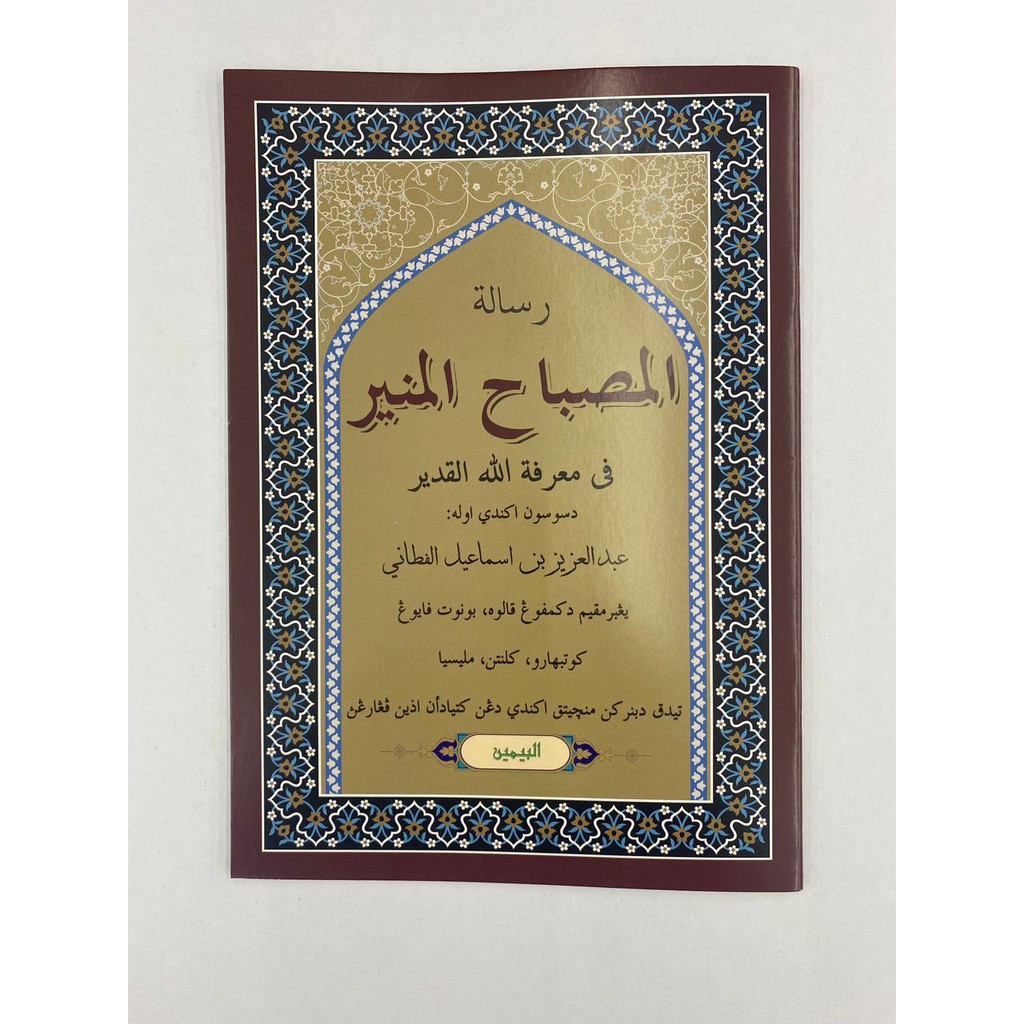 رسالة
المصباح المنير
فى معرفة الله القدير
دسوسون اكندي اوله:
عبدالعزيز بن اسماعيل الفطاني
يڠبرمقيم دكمفوڠ ڤالوه، بونوت فايوڠ
كوتبهارو، كلنتن، مليسيا
تيدق دبنركن منچيتق اكندي دڠن كتيادأن اذين ڤڠارڠن
البيمين